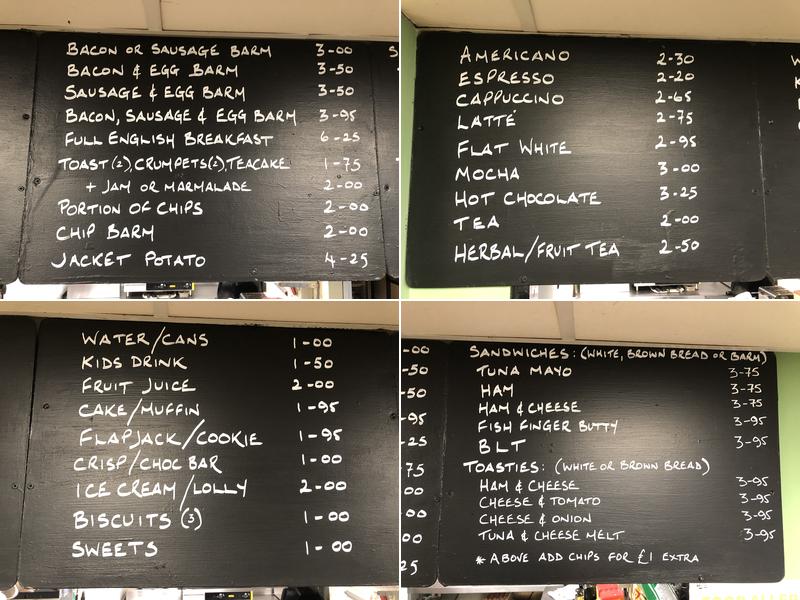 BACON OR SAUSAGE BARM 3-00
BACON & EGG BARM 3-50
SAUSAGE & EGG BARM 3-50
BACON, SAUSAGE & EGG BARM 3-95
FULL ENGLISH BREAKFAST 6-25
TOAST (2), CRUMPETS (2), TEACAKE 1-75
+ JAM OR MARMALADE 2-00
PORTION OF CHIPS 2-00
CHIP BARM 2-00
JACKET POTATO 4-25
S
AMERICANO 2-30
ESPRESSO 2-20
CAPPUCCINO 2-65
LATTÉ 2-75
FLAT WHITE 2-95
MOCHA 3-00
HOT CHOCOLATE 3-25
TEA 2-00
HERBAL/FRUIT TEA 2-50
WATER/CANS 1-00
KIDS DRINK 1-50
FRUIT JUICE 2-00
CAKE/MUFFIN 1-95
FLAPJACK/COOKIE 1-95
CRISP/CHOC BAR 1-00
ICE CREAM/LOLLY 2-00
BISCUITS (3) 1-00
SWEETS 1-00
-00
-50
-50
-95
-25
75
00
00
00
25
SANDWICHES: (WHITE, BROWN BREAD OR BARM)
TUNA MAYO 3-75
HAM 3-75
HAM & CHEESE 3-75
FISH FINGER BUTTY 3-95
BLT 3-95
TOASTIES: (WHITE OR BROWN BREAD)
HAM & CHEESE 3-95
CHEESE & TOMATO 3-95
CHEESE & ONION 3-95
TUNA & CHEESE MELT 3-95
* ABOVE ADD CHIPS FOR £1 EXTRA